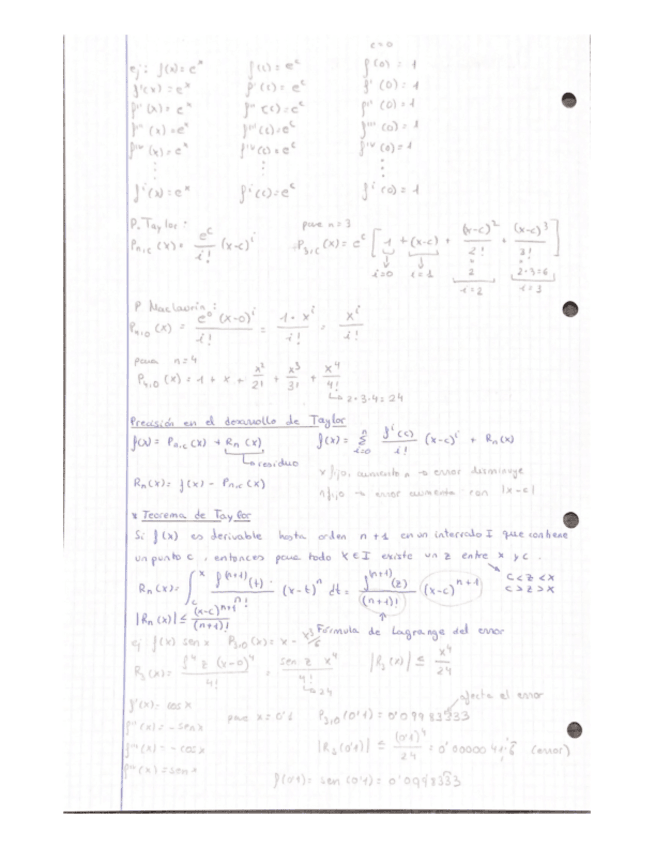 c=0
ej: f(x)=e^x    f(c)=e^c    f(0)=1
f'(x)=e^x    f'(c)=e^c    f'(0)=1
f''(x)=e^x    f''(c)=e^c    f''(0)=1
f'''(x)=e^x    f'''(c)=e^c    f'''(0)=1
f^iv(x)=e^x    f^iv(c)=e^c    f^iv(0)=1
⋮    ⋮    ⋮
f^i(x)=e^x    f^i(c)=e^c    f^i(0)=1
P. Taylor:    para n=3
P_n,c(x)= e^c/i! (x-c)^i    P_3,c(x)= e^c [1 + (x-c) + (x-c)^2/2! + (x-c)^3/3!]
i=0    i=1    2    2·3=6
i=2    i=3
P Maclaurin:
P_n,0(x) = e^0 (x-0)^i/i! = 1·x^i/i! = x^i/i!
para n=4
P_4,0(x) = 1 + x + x^2/2! + x^3/3! + x^4/4!
2·3·4=24
Precisión en el desarrollo de Taylor
f(x)= P_n,c(x) + R_n(x)    f(x)= Σ_{i=0}^{n} f^i(c)/i! (x-c)^i + R_n(x)
residuo
x fijo, aumento n → error disminuye
R_n(x)= f(x) - P_n,c(x)    n fijo → error aumenta con |x-c|
* Teorema de Taylor
Si f(x) es derivable hasta orden n+1 en un intervalo I que contiene
un punto c, entonces para todo x∈I existe un z entre x y c.
R_n(x)= ∫_c^x f^(n+1)(t)/n! · (x-t)^n dt = f^(n+1)(z)/(n+1)! (x-c)^(n+1)    c<z<x
c>z>x
|R_n(x)| ≤ (x-c)^(n+1)/(n+1)!
Fórmula de Lagrange del error
ej f(x) sen x    P_3,0(x)= x - x^3/6
R_3(x)= f^4 z (x-0)^4/4! = sen z x^4/4!    |R_3(x)| ≤ x^4/24
24
f'(x)= cos x    afecta el error
f''(x)= -sen x    para x=0'1    P_3,0(0'1)=
f'''(x)= -cos x    |R_3(0'1)| ≤ (0'1)^4/24 =    (error)
f''''(x)= sen x
f(0'1)= sen(0'1)=